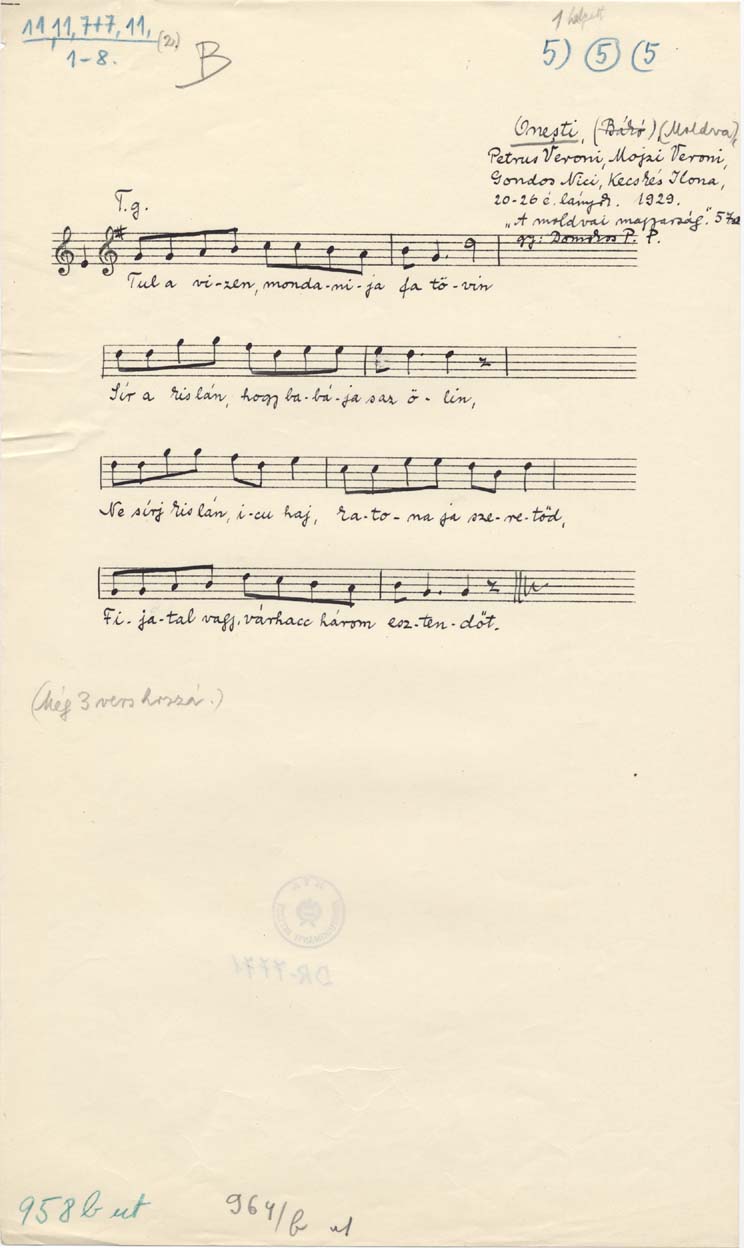 11, 11, 7+7, 11, (2)
1-8.
B
5) 5 (5
Onești, (Báró) (Moldva),
Petrus Veroni, Mojzi Veroni,
Gondos Nici, Kecskés Ilona,
20-26 é. lányok. 1929.
"A moldvai magyarság". 57
gy: Domokos P. P.
T.g.
Tul a vi-zen, monda-ni-ja fa tö-vin
Sír a kislán, hogy ba-bá-ja saz ö-lin,
Ne sírj kislán, i-cu haj, ka-to-na ja sze-re-töd,
Fi-ja-tal vagy, várhacc három esz-ten-dőt.
(Még 3 vers hozzá.)
DR-7771
958 b ut
964/b ut